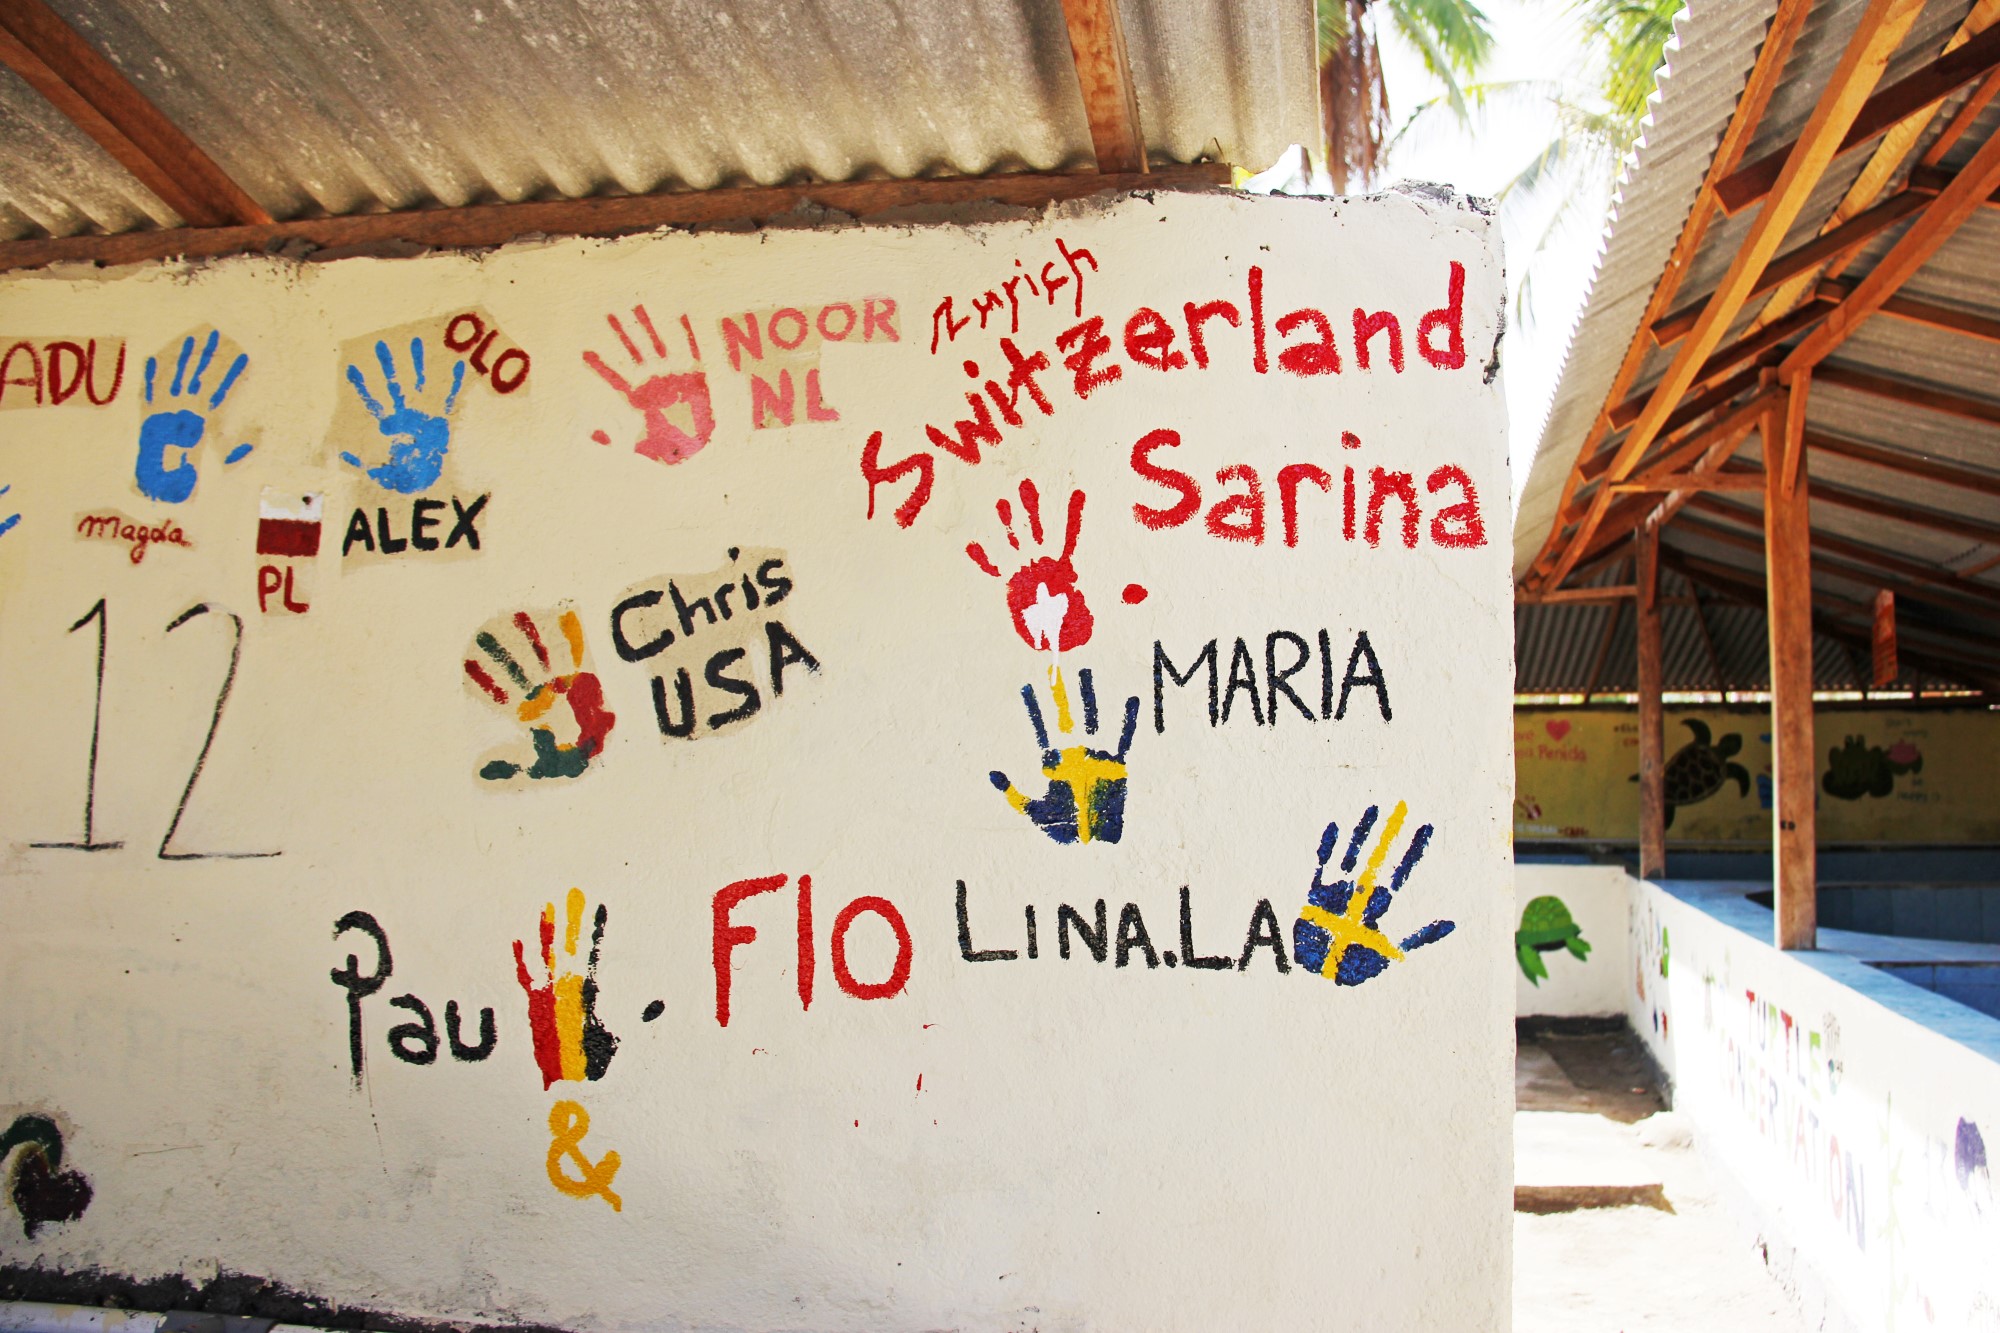 ADU
OLO
NOOR
NL
Zurich
Switzerland
Sarina
Magda
PL
ALEX
12
Chris
USA
MARIA
Pau
Flo
LINA.LA
&
Penida
TURTLE
CONSERVATION